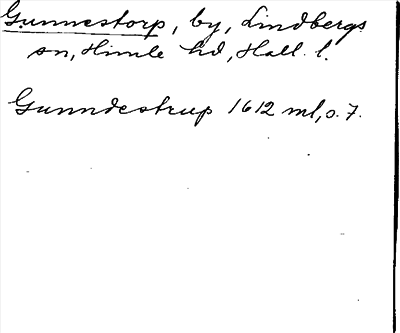 Gunnestorp, by, Lindbergs
sn, Himle hd, Hall. l.
Gunndestrup 1612 ml, o. 7.